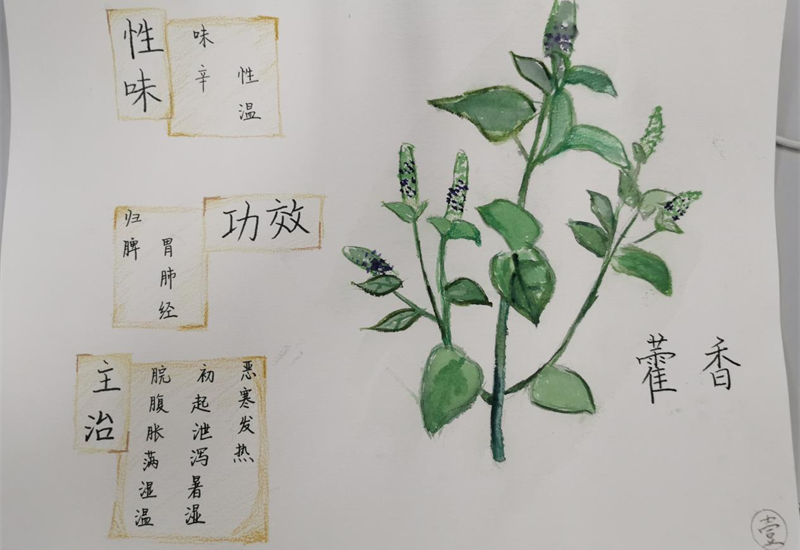 性味
味辛
性温
功效
归脾
胃肺经
主治
脘腹胀满湿温
初起泄泻暑湿
恶寒发热
藿香
壹